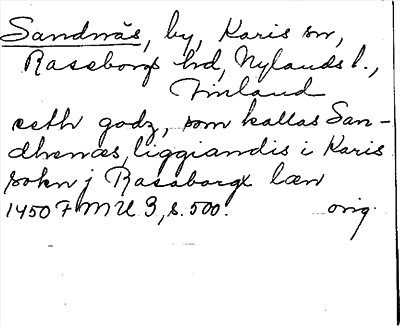 Sandnäs, by, Karis sn,
Raseborgs hd, Nylands l.,
Finland
eeth godz, som kallas San-
dhenæs, liggiandis i Karis
sokn j Rasaborgx læn
1450 FMU 3, s. 500. orig.